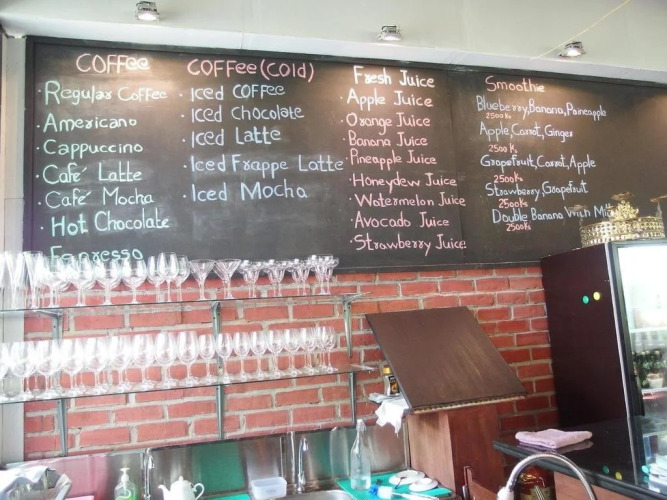 COFFee
· Regular Coffee
· Americano
· Cappuccino
· Café Latte
· Café Mocha
· Hot Chocolate
· Espresso
COFFee (Cold)
· Iced COFFee
· Iced Chocolate
· Iced Latte
· Iced Frappe Latte
· Iced Mocha
Fresh Juice
· Apple Juice
· Orange Juice
· Banana Juice
· Pineapple Juice
· Honeydew Juice
· Watermelon Juice
· Avocado Juice
· Strawberry Juice
Smoothie
Blueberry, Banana, Paineapple
2500 Ks
Apple, Carrot, Ginger
2500 Ks
Grapefruit, Carrot, Apple
2500 Ks
Strawberry, Grapefruit
2500 Ks
Double Banana With Milk
2500 Ks